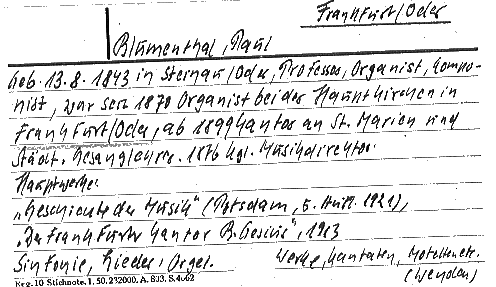 Frankfurt/Oder
Blumenthal, Paul
Geb. 13.8.1843 in Steinau/Oder, Professor, Organist, Kompo-
nist, war seit 1870 Organist bei den Hauptkirchen in
Frankfurt/Oder, ab 1899 Kantor an St. Marien und
Städt. Gesanglehrer. 1876 kgl. Musikdirektor.
Hauptwerke:
"Geschichte der Musik" (Potsdam, 5. Aufl. 1921),
"Der Frankfurter Kantor B. Gesius", 1913
Sinfonie, Lieder, Orgel. Werke, Kantaten, Motetten etc.
(Weyden)
Reg. 10 Stichnote. 1. 50. 232000. A. 803. S. 4062